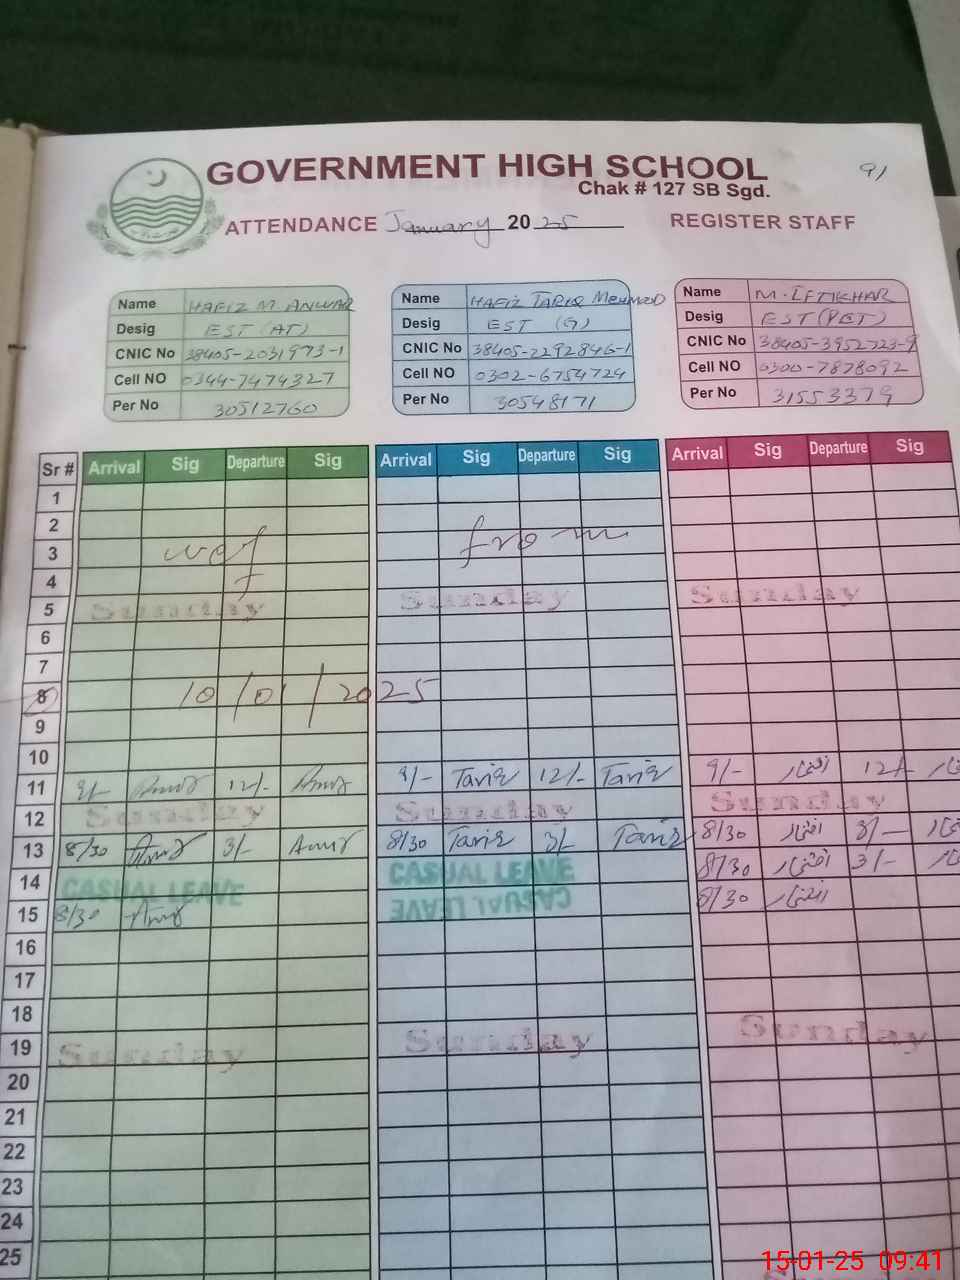 GOVERNMENT HIGH SCHOOL
Chak # 127 SB Sgd.
91
ATTENDANCE January 2025 REGISTER STAFF
Name HAFIZ M. ANWAR
Desig EST (AT)
CNIC No 38405-2031973-1
Cell NO 0344-7474327
Per No 30512760
Name HAFIZ TARIQ MEHMOOD
Desig EST (G)
CNIC No 38405-2292846-1
Cell NO 0302-6754724
Per No 30548171
Name M. IFTIKHAR
Desig EST (PET)
CNIC No 38405-3952723-9
Cell NO 0300-7878092
Per No 31553379
Sr # Arrival Sig Departure Sig Arrival Sig Departure Sig Arrival Sig Departure Sig
1
2
3 wef from
4
5 Sunday Sunday Sunday
6
7
8 10/01/2025
9
10
11 9/- Anwar 12/- Anwar 9/- Tariq 12/- Tariq 9/- افتخار 12/-
12 Sunday Sunday Sunday
13 8/30 Anwar 3/- Anwar 8/30 Tariq 3/- Tariq 8/30 افتخار 3/-
14 CASUAL LEAVE CASUAL LEAVE 8/30 افتخار 3/-
15 8/30 Anwar CASUAL LEAVE 8/30 افتخار
16
17
18
19 Sunday Sunday Sunday
20
21
22
23
24
25
15-01-25 09:41